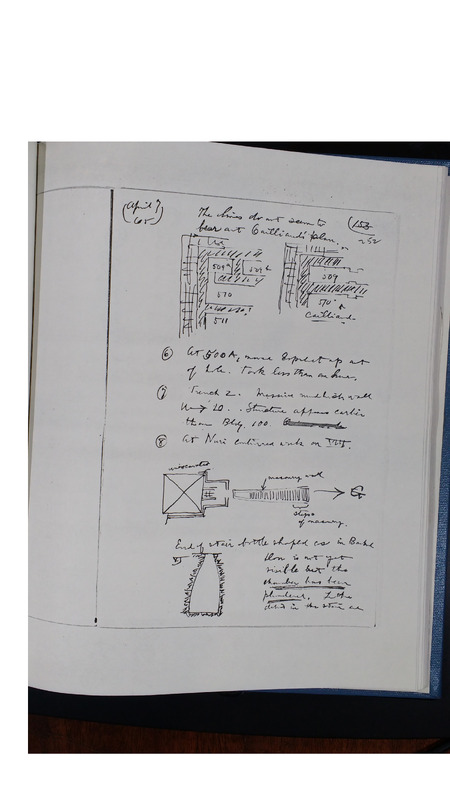 (April 9
65)
(153
252
The lines do not seem to
bear out Cailliaud's plan.
509a
509b
510
511
509
510
Cailliaud
⑥ At 500A, move Expect up out
of hole. Took less than an hour.
⑦ Trench 2. Massive mud brick wall
Structure appears earlier
than Bldg. 100.
⑧ At Nuri continued work on
masonry wall
slope
of masonry.
End of stair bottle shaped as in Bark
door is not yet
visible but the
chamber has been
plundered. In the
debris in the stair are